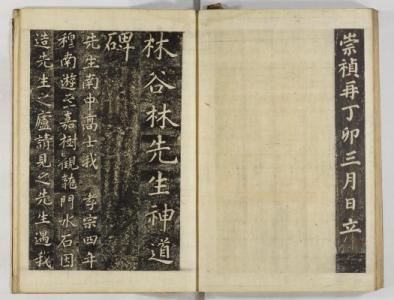 崇禎再丁卯三月日立
林谷林先生神道
碑
先生南中高士我 孝宗四年
穆南遊至嘉樹觀龍門水石因
造先生之廬請見之先生遇我